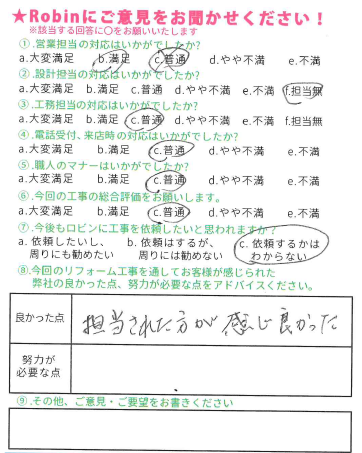 ★Robinにご意見をお聞かせください！
※該当する回答に〇をお願いいたします
①.営業担当の対応はいかがでしたか?
a.大変満足 b.満足 c.普通 d.やや不満 e.不満
②.設計担当の対応はいかがでしたか?
a.大変満足 b.満足 c.普通 d.やや不満 e.不満 f.担当無
③.工務担当の対応はいかがでしたか?
a.大変満足 b.満足 c.普通 d.やや不満 e.不満 f.担当無
④.電話受付、来店時の対応はいかがでしたか?
a.大変満足 b.満足 c.普通 d.やや不満 e.不満
⑤.職人のマナーはいかがでしたか?
a.大変満足 b.満足 c.普通 d.やや不満 e.不満
⑥.今回の工事の総合評価をお願いします。
a.大変満足 b.満足 c.普通 d.やや不満 e.不満
⑦.今後もロビンに工事を依頼したいと思われますか？
a. 依頼したいし、 b. 依頼はするが、 c. 依頼するかは
周りにも勧めたい 周りには勧めない わからない
⑧.今回のリフォーム工事を通してお客様が感じられた
弊社の良かった点、努力が必要な点をアドバイスください。
良かった点 担当された方が感じ良かった
努力が
必要な点
⑨.その他、ご意見・ご要望をお書きください